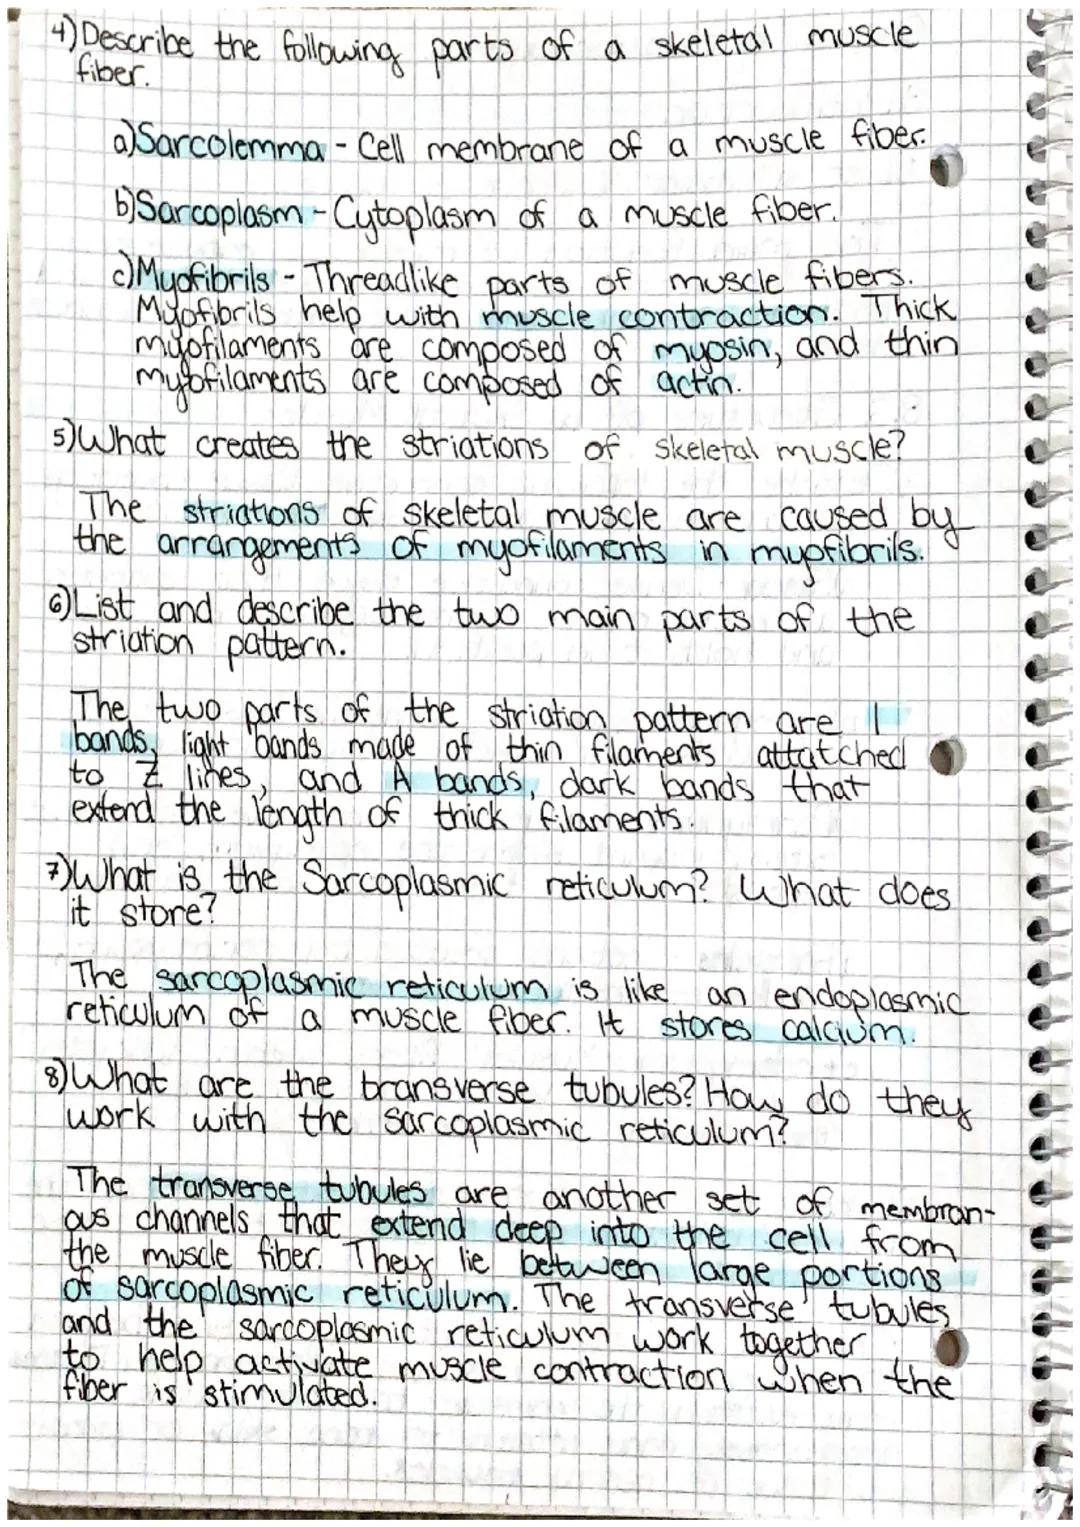 4) Describe the following parts of a skeletal muscle
fiber.
a) Sarcolemma - Cell membrane of a muscle fiber.
b) Sarcoplasm - Cytoplasm of a muscle fiber.
c) Myofibrils - Threadlike parts of muscle fibers.
Myofibrils help with muscle contraction. Thick
myofilaments are composed of myosin, and thin
myofilaments are composed of actin.
5) What creates the striations of skeletal muscle?
The striations of skeletal muscle are caused by
the arrangements of myofilaments in myofibrils.
6) List and describe the two main parts of the
striation pattern.
The two parts of the striation pattern are I
bands, light bands made of thin filaments attatched
to Z lines, and A bands, dark bands that
extend the length of thick filaments.
7) What is the Sarcoplasmic reticulum? What does
it store?
The sarcoplasmic reticulum is like an endoplasmic
reticulum of a muscle fiber. It stores calcium.
8) What are the transverse tubules? How do they
work with the sarcoplasmic reticulum?
The transverse tubules are another set of membran-
ous channels that extend deep into the cell from
the muscle fiber. They lie between large portions
of sarcoplasmic reticulum. The transverse tubules
and the sarcoplasmic reticulum work together
to help activate muscle contraction when the
fiber is stimulated.